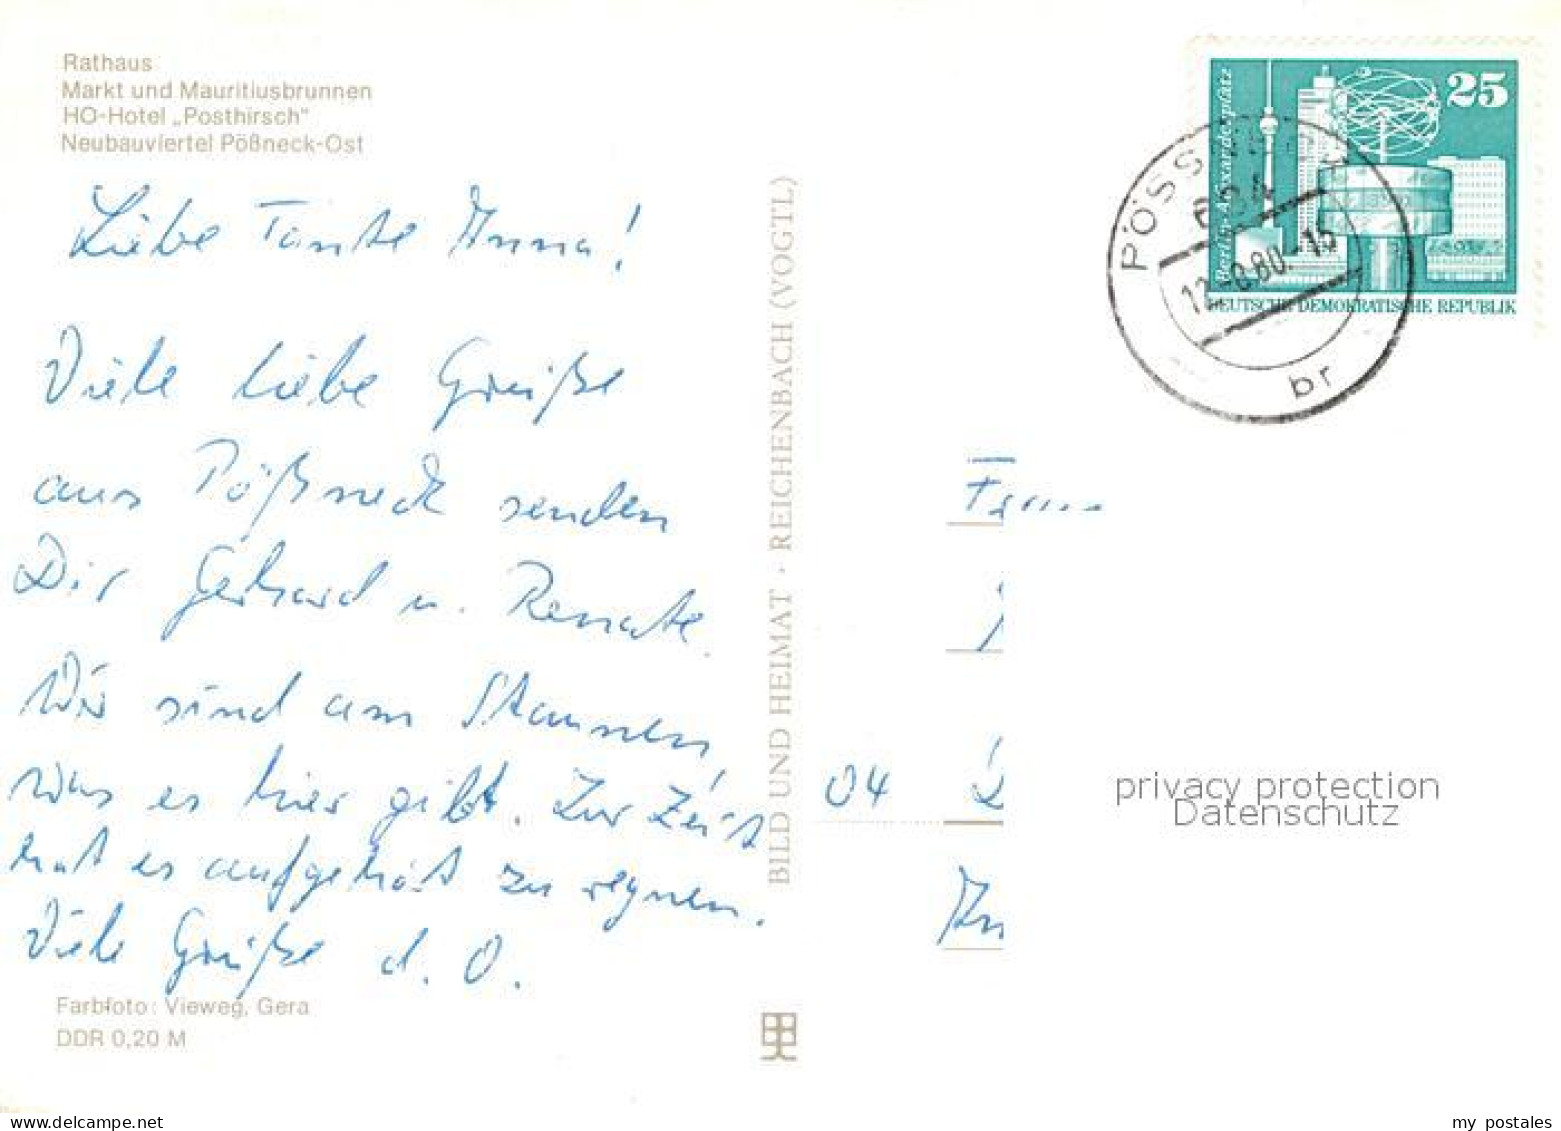 Rathaus
Markt und Mauritiusbrunnen
HO-Hotel „Posthirsch"
Neubauviertel Pößneck-Ost
Liebe Tante Anna!
Viele liebe Grüße
aus Pößneck senden
Dir Gerhard u. Renate.
Wir sind am Staunen,
was es hier gibt. Zur Zeit
hat es aufgehört zu regnen.
Viele Grüße d. O.
Farbfoto: Vieweg, Gera
DDR 0,20 M
BILD UND HEIMAT · REICHENBACH (VOGTL)
25
Berlin-Alexanderplatz
DEUTSCHE DEMOKRATISCHE REPUBLIK
PÖSSNECK
8.80.-15
br
04
privacy protection
Datenschutz
my postales